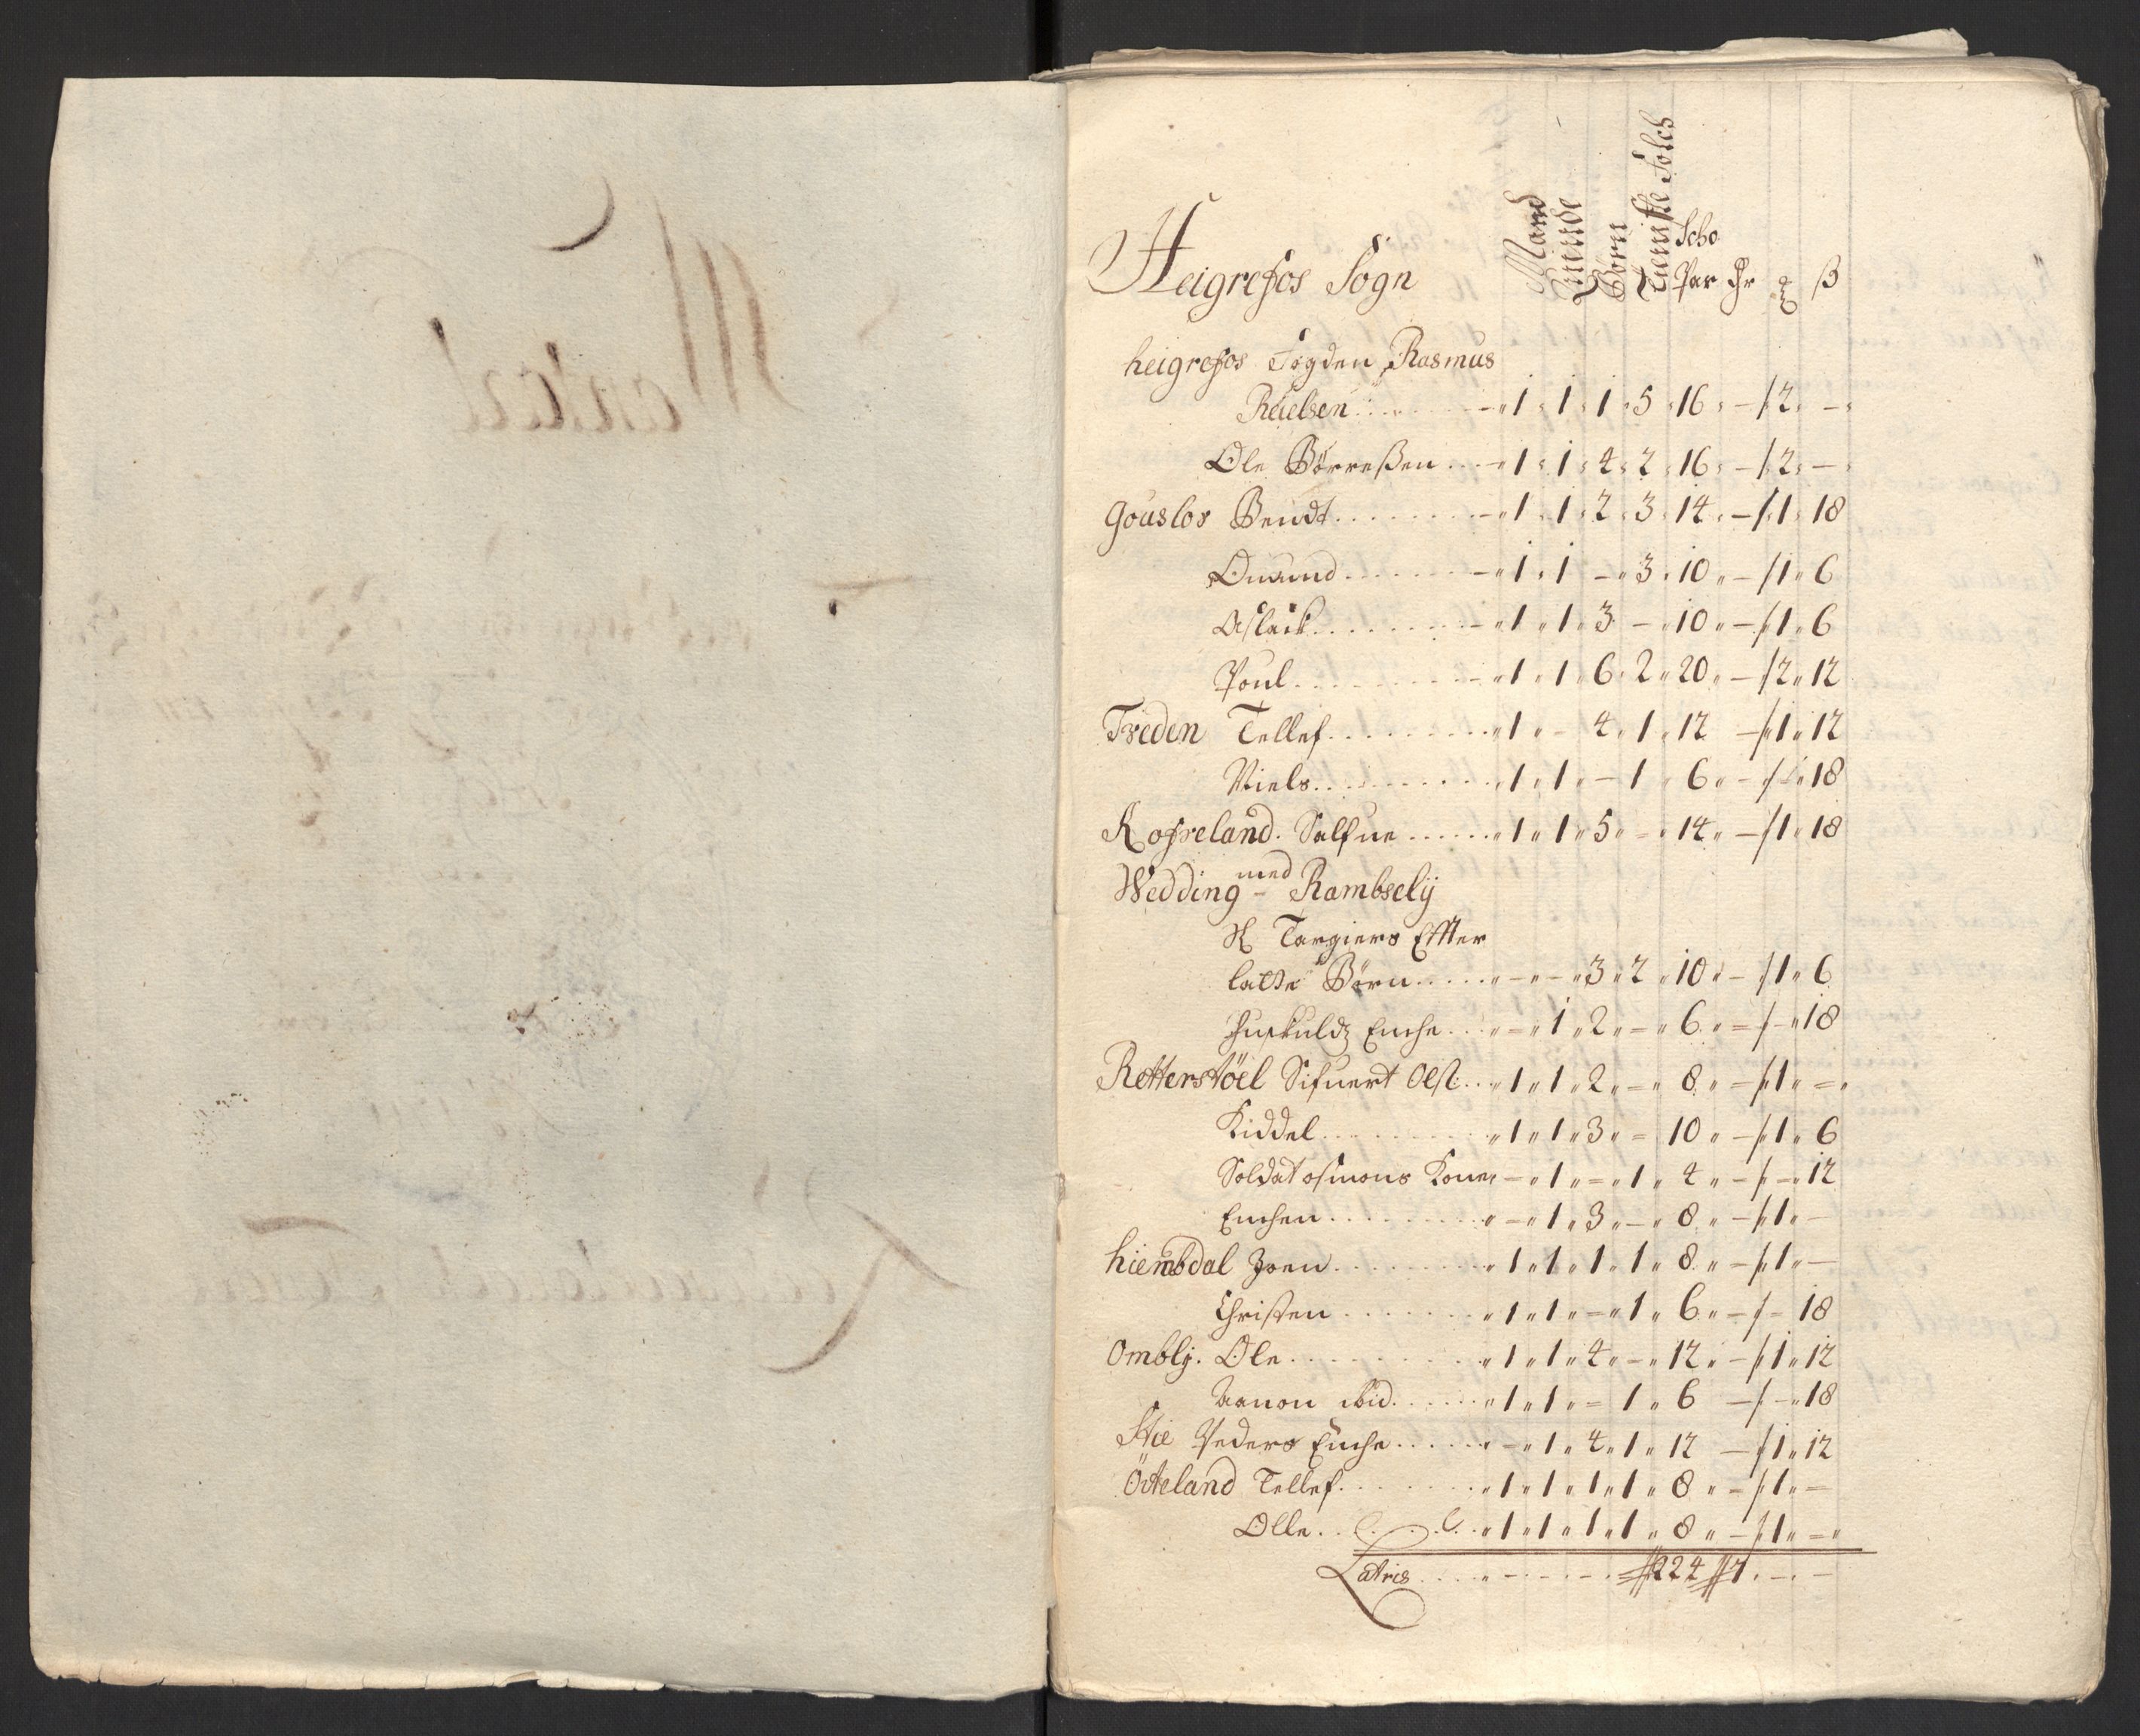 Mand
Quinde
Börn
Tieniste Folch
Scho
Heigrefos Sogn Par ß
heigrefos Fogden Rasmus
Rielsen 1 1 1 5 16 – 2 –
Ole Börreßen 1 1 4 2 16 – 2 –
Gouslos Bendt 1 1 2 3 14 – 1 18
Onund 1 1 – 3 10 – 1 6
Aslack 1 1 3 – 10 – 1 6
Poul 1 1 6 2 20 – 2 12
Tveden Tellef 1 – 4 1 12 – 1 12
Niels 1 1 – 1 6 – – 18
Rosseland Salfue 1 1 5 – 14 – 1 18
Wedding med Rambselij
H Targiers Effter
latte Börn – – 3 2 10 – 1 6
Enche – 1 2 – 6 – – 18
Retterstöel Sifuert Olß: 1 1 2 – 8 – 1 –
Kiddel 1 1 3 – 10 – 1 6
Soldat osmons Kone – 1 – 1 4 – – 12
Enchen – 1 3 – 8 – 1 –
hiembdal Joen 1 1 1 1 8 – 1 –
Christen 1 1 – 1 6 – – 18
Omblj. Ole 1 1 4 – 12 – 1 12
Aanon ibid. 1 1 – 1 6 – – 18
Stie Peders Enche – 1 4 1 12 – 1 12
Öiteland Tellef 1 1 1 1 8 – 1 –
Olle 1 1 1 1 8 – 1 –
Latris 224